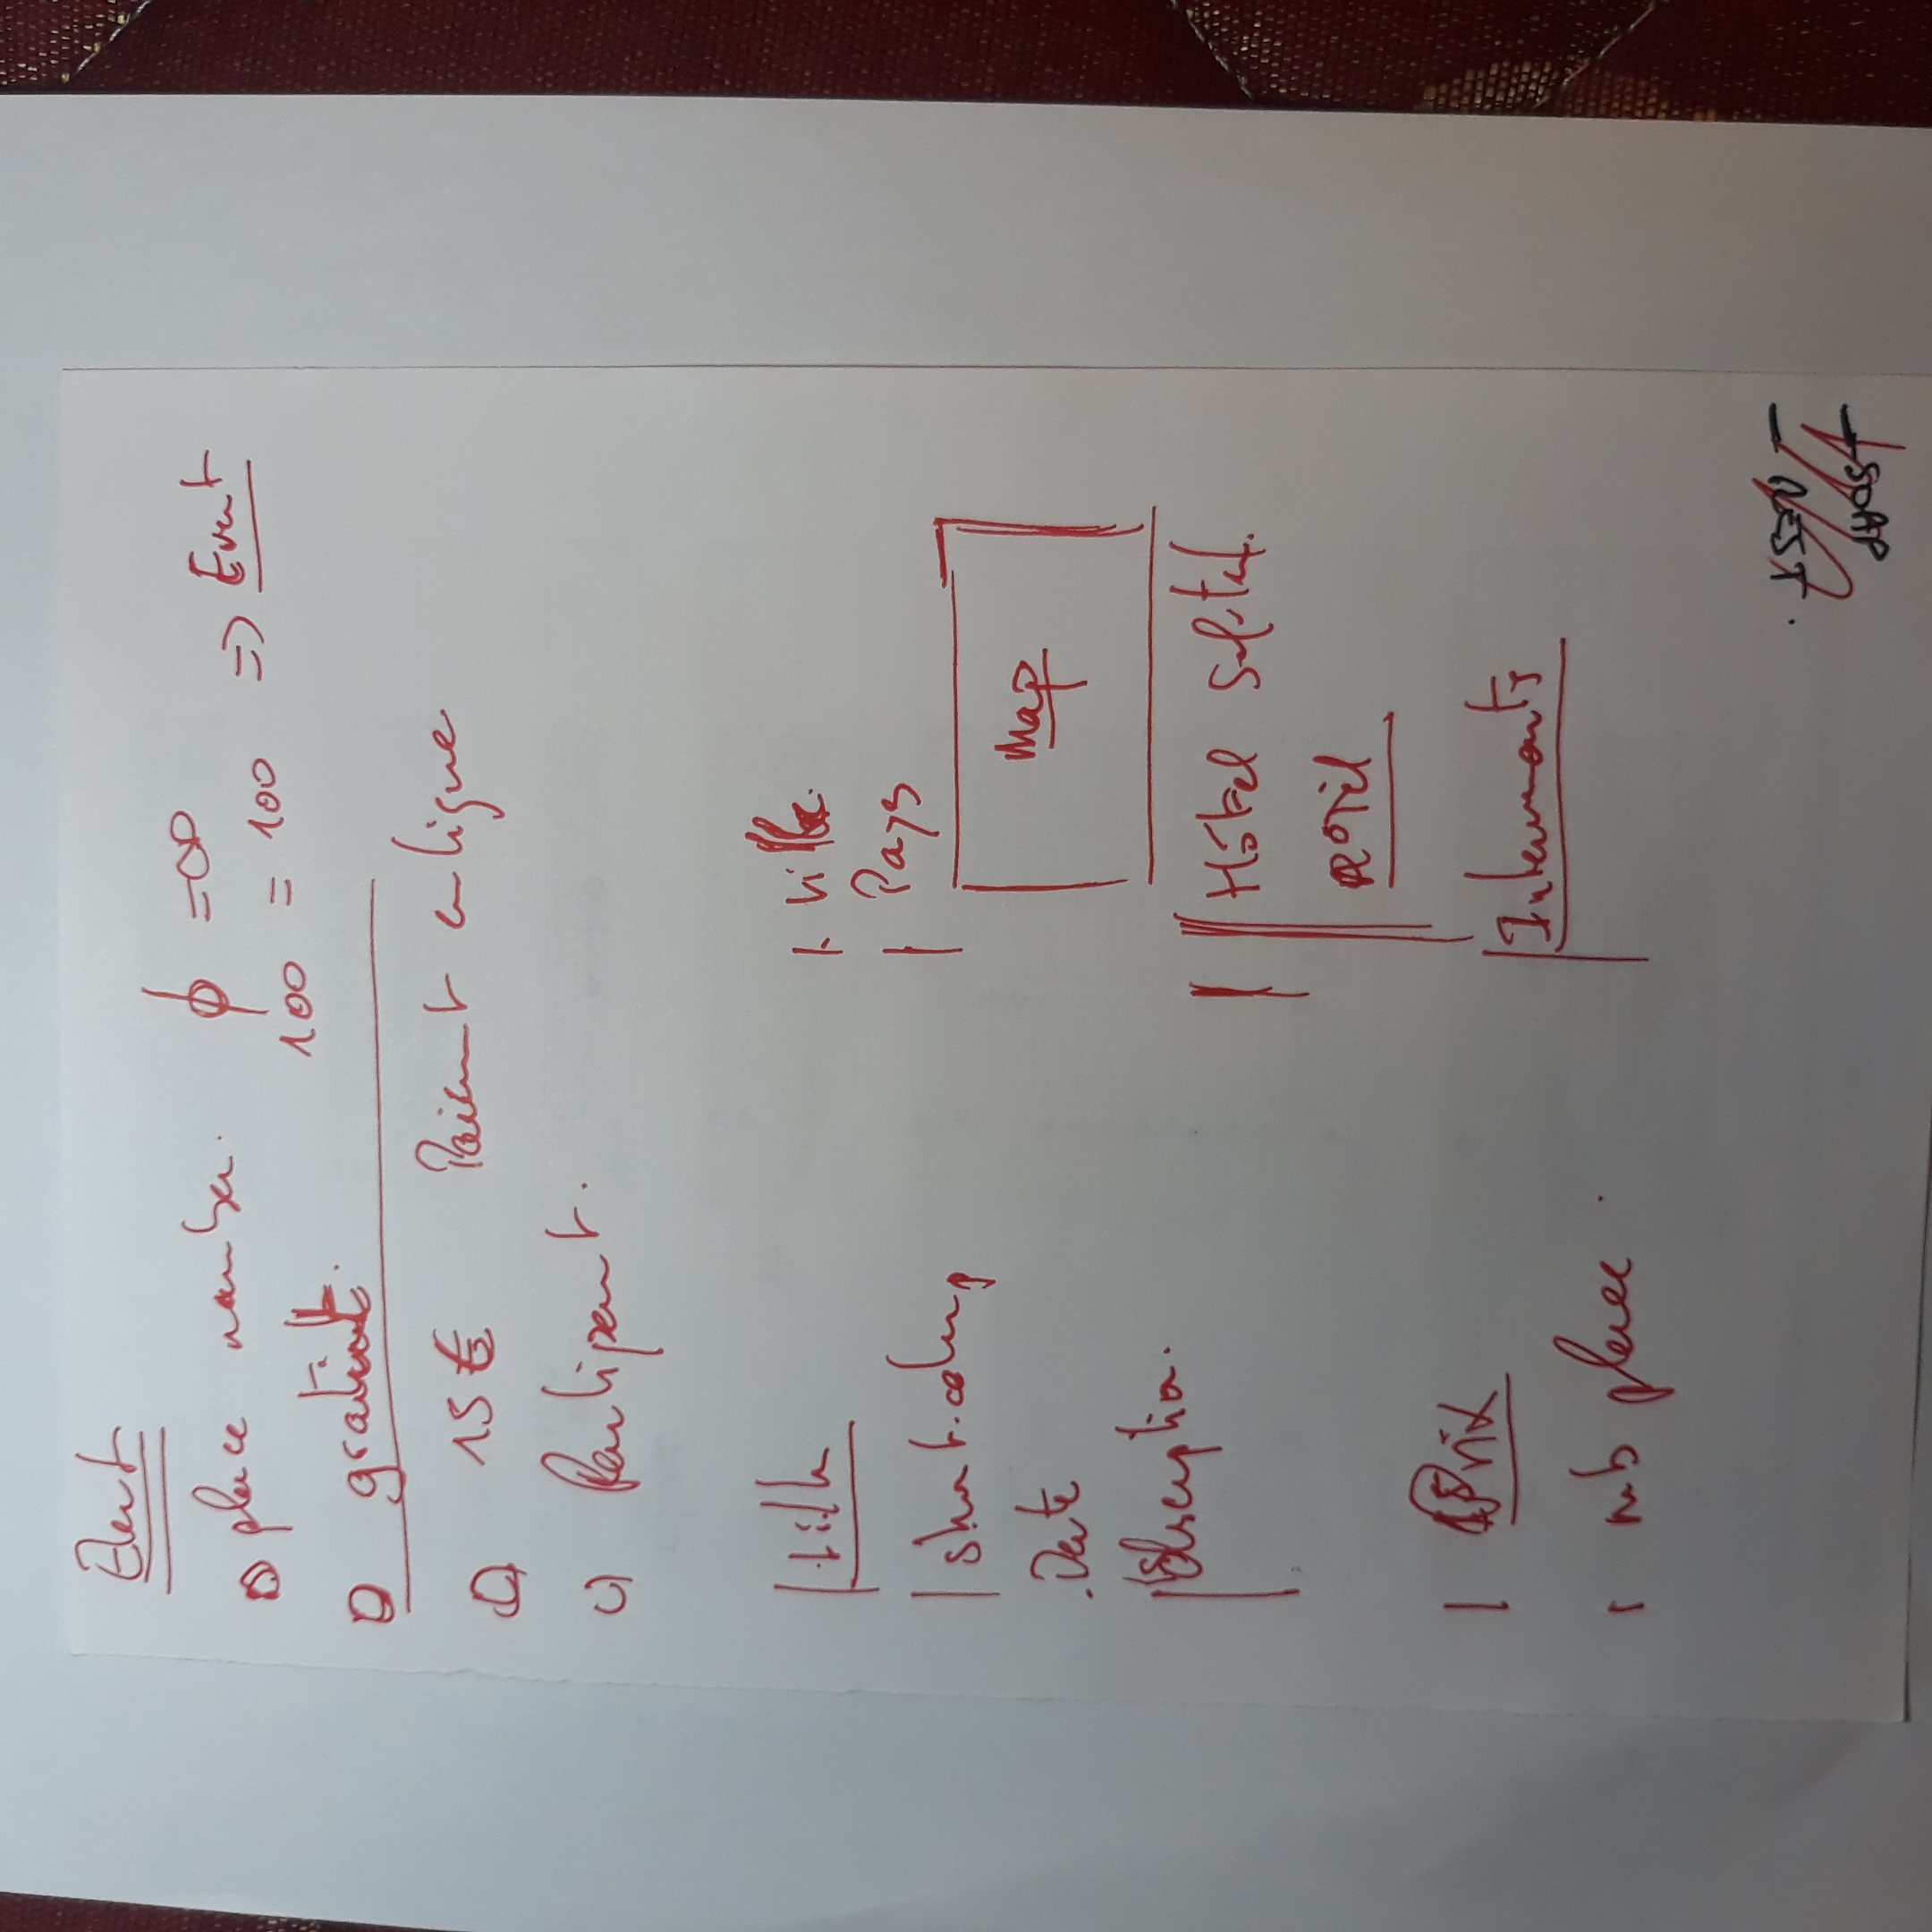 Event
place number. ϕ = ∞
100 = 100 => Event
gratuit.
15 € Paiemt en ligne
Partipant.
title
short.
.Date
description.
Prix
nb place .
ville.
Pays
Map
Hôtel Sofitel.
Intervenants
- REST
- SOAP